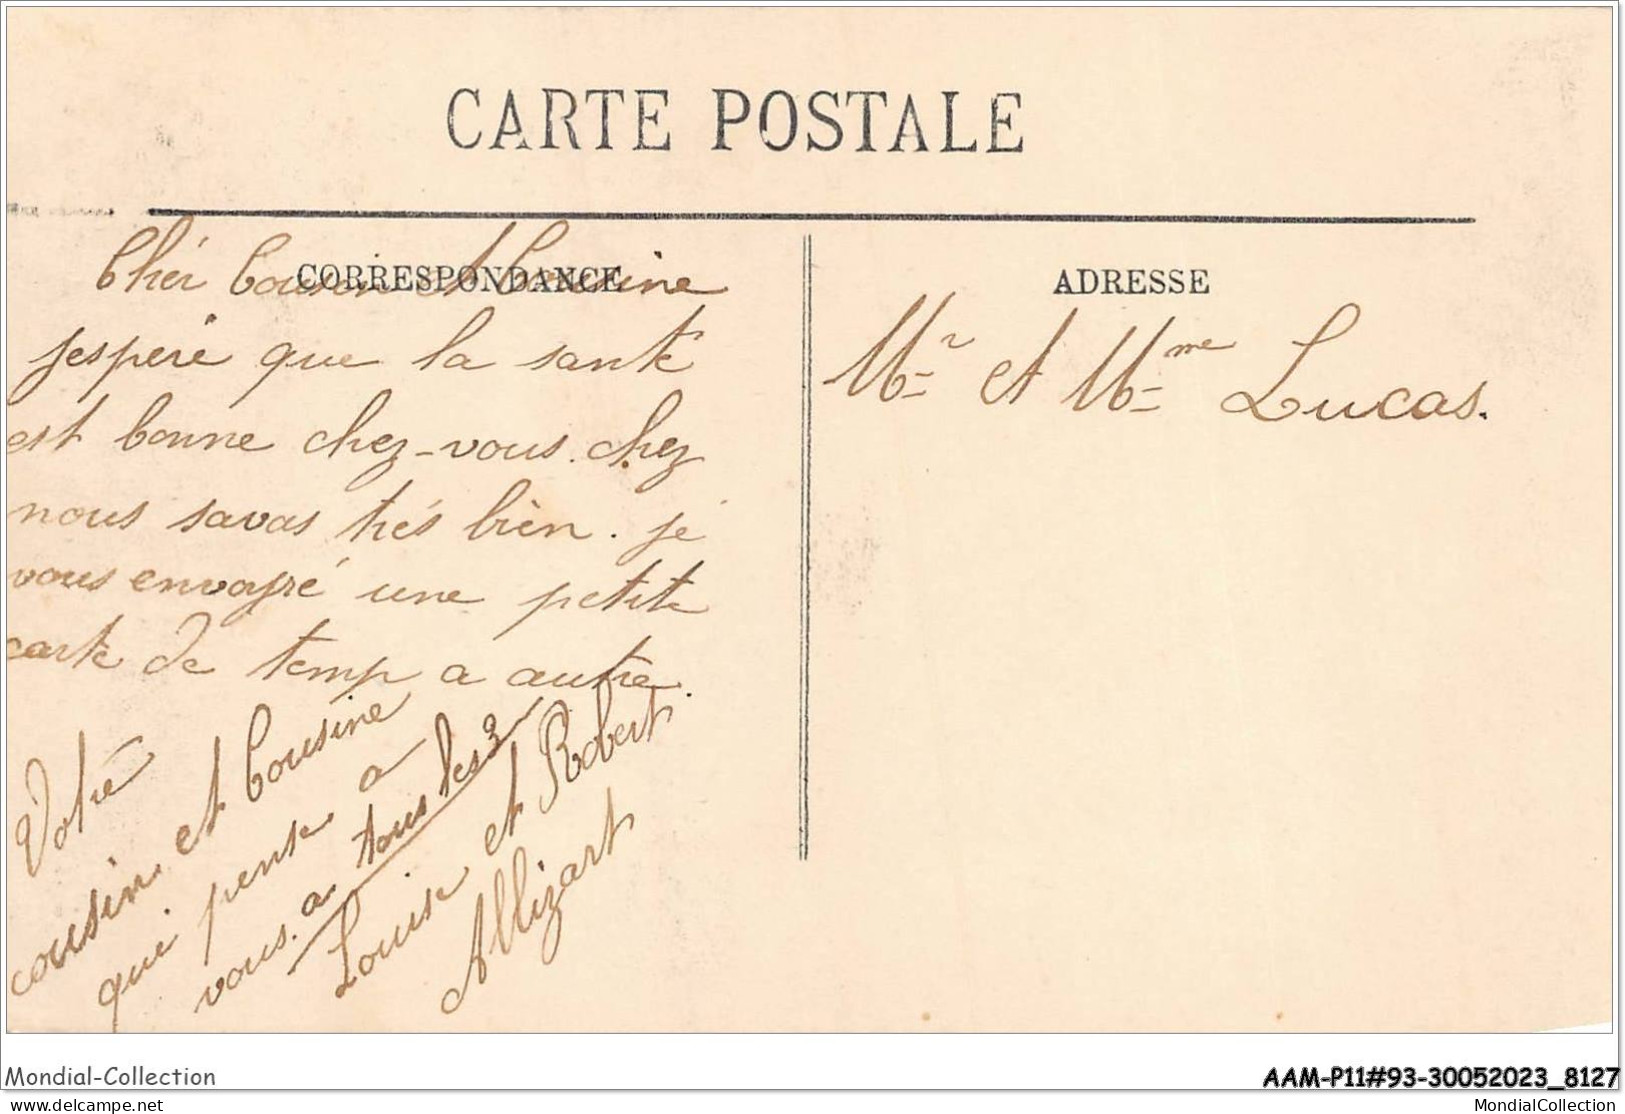 CARTE POSTALE
CORRESPONDANCE
Chér Cousin et Cousine
jespére que la santé
est bonne chez-vous. chez
nous savas trés bien. jé
vous envoyré une petite
carte de temp a autre.
Votré
cousin et Cousine
qui pense a
vous. a tous les 3
Louise et Robert
Allizart
ADRESSE
Mr et Mme Lucas.
Mondial-Collection
AAM-P11#93-30052023_8127
delcampe.net
MondialCollection